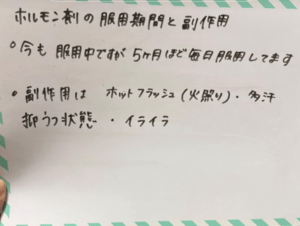 ホルモン剤の服用期間と副作用
○今も服用中ですが5ヶ月ほど毎日服用してます
○副作用は ホットフラッシュ(火照り)・多汗
抑うつ状態 ・イライラ